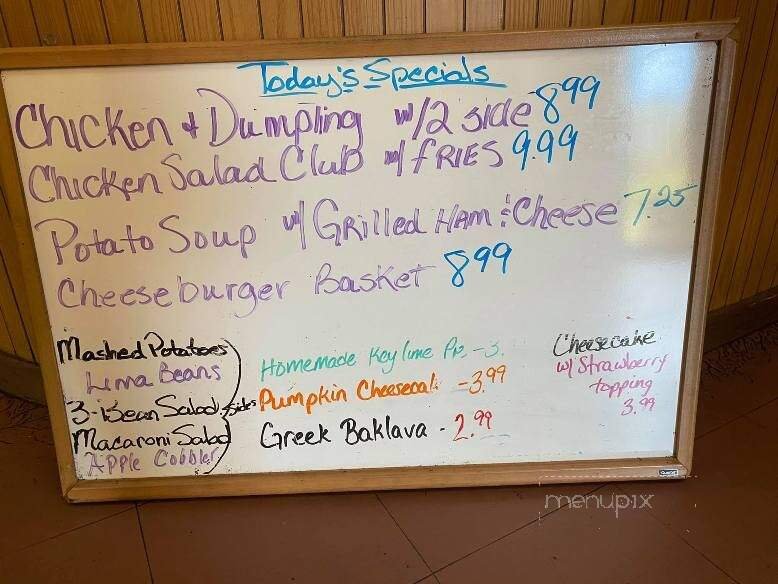 Today's Specials
Chicken & Dumpling w/2 side 8.99
Chicken Salad Club w/ FRIES 9.99
Potato Soup w/ GRilled HAM & Cheese 7.25
Cheeseburger Basket 8.99
Mashed Potatoes
Lima Beans
3-Bean Salad
Macaroni Salad
Apple Cobbler
Sides
Homemade Key lime Pie - 3.
Pumpkin Cheesecake - 3.99
Greek Baklava - 2.99
Cheesecake
w/ Strawberry
topping
3.99
menupix